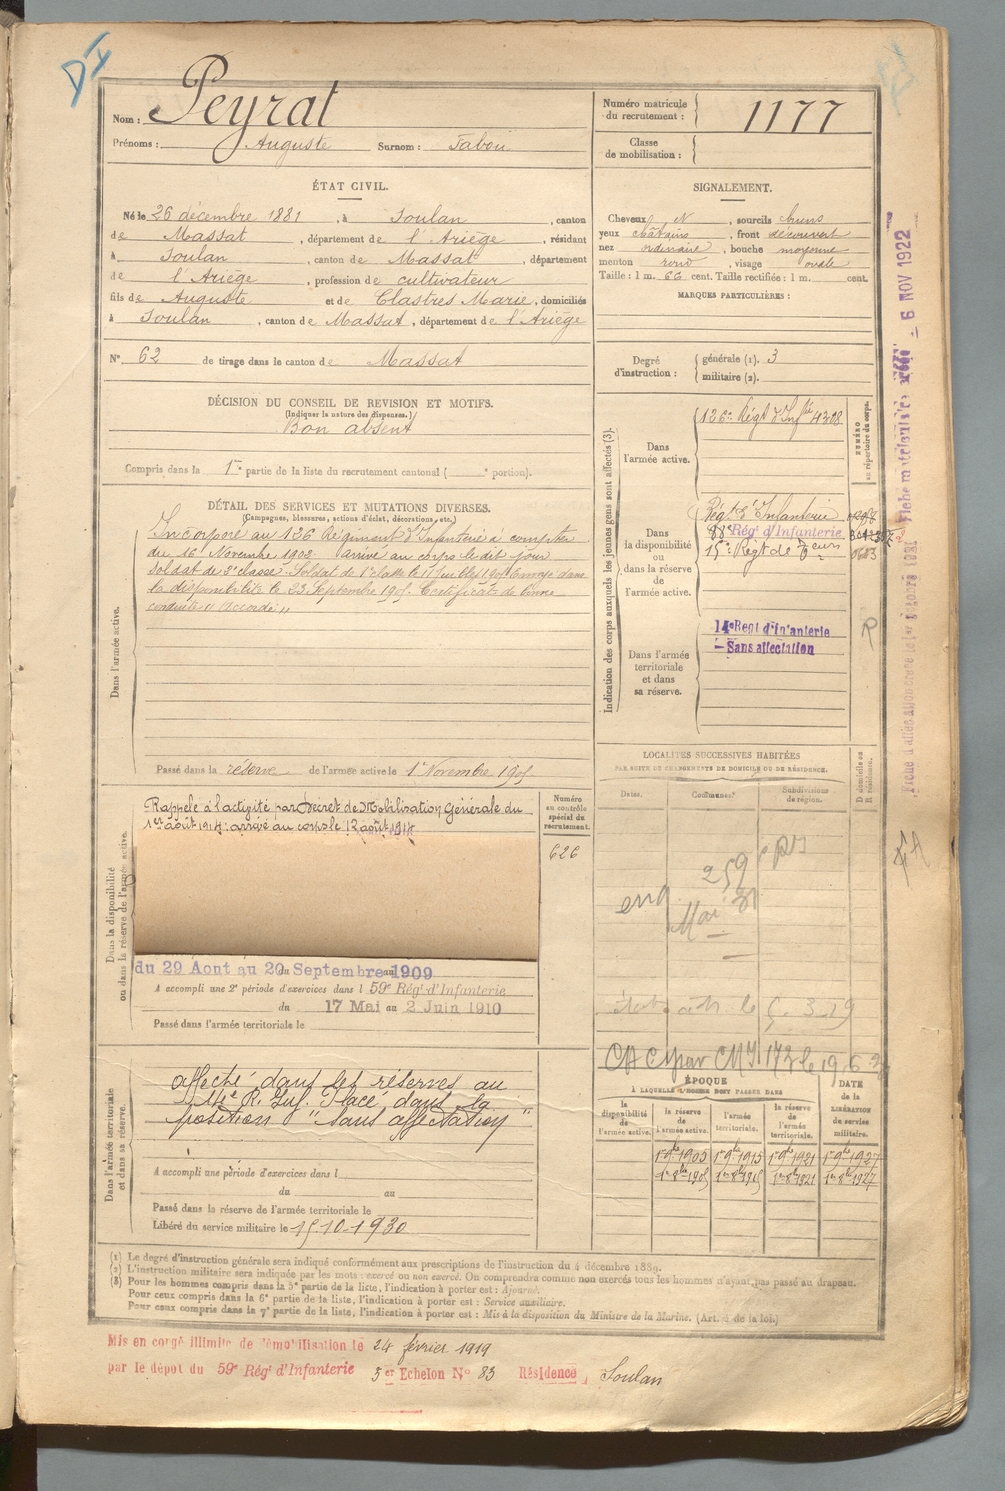 Nom : Peyrat
Prénoms : Auguste Surnom : Tabou
Numéro matricule
du recrutement : 1177
Classe
de mobilisation :
ÉTAT CIVIL.
Né le 26 décembre 1881, à Soulan, canton
de Massat, département de l'Ariège, résidant
à Soulan, canton de Massat, département
de l'Ariège, profession de cultivateur
fils de Auguste et de Clastres Marie, domiciliés
à Soulan, canton de Massat, département de l'Ariège
N° 62 de tirage dans le canton de Massat
SIGNALEMENT.
Cheveux N, sourcils bruns
yeux châtains, front découvert
nez ordinaire, bouche moyenne
menton rond, visage ovale
Taille : 1 m. 66 cent. Taille rectifiée : 1 m. cent.
MARQUES PARTICULIÈRES :
Degré
d'instruction :
générale (1). 3
militaire (2).
DÉCISION DU CONSEIL DE REVISION ET MOTIFS.
(Indiquer la nature des dispenses.)
Bon absent
Compris dans la 1re partie de la liste du recrutement cantonal ( e portion).
DÉTAIL DES SERVICES ET MUTATIONS DIVERSES.
(Campagnes, blessures, actions d'éclat, décorations, etc.)
Dans l'armée active.
Incorporé au 126 Régiment d'Infanterie à compter
du 16 Novembre 1902 arrivé au corps le dit jour
soldat de 2e classe. Soldat de 1e classe le 11 Juillet 1905 Envoyé dans
la disponibilité le 23 Septembre 1905. Certificat de bonne
conduite "Accordé"
Passé dans la réserve de l'armée active le 1er Novembre 1905
Indication des corps auxquels les jeunes gens sont affectés (3).
NUMÉRO
au répertoire du corps.
Dans
l'armée active.
126e Régt d'Infie 4308
Dans
la disponibilité
ou dans
la réserve de
l'armée active.
Régt d'Infanterie
88e Régt d'Infanterie
15e Régt de
Dans l'armée
territoriale
et dans
sa réserve.
14e Regt d'Infanterie
- Sans affectation
R
Dans la disponibilité
ou dans la réserve de l'armée active.
Rappelé à l'activité par Décret de Mobilisation Générale du
1er août 1914 ; arrivé au corps le 12 août 1914
Numéro
au contrôle
spécial du
recrutement.
626
du 29 Aout au 20 Septembre 1909
A accompli une 2e période d'exercices dans l 59e Régt d'Infanterie
du 17 Mai au 2 Juin 1910
Passé dans l'armée territoriale le
LOCALITÉS SUCCESSIVES HABITÉES
PAR SUITE DE CHANGEMENTS DE DOMICILE OU DE RÉSIDENCE.
Dates.
Communes.
Subdivisions
de région.
D domicile ou
R résidence.
259
Mai 31
Dans l'armée territoriale
et dans sa réserve.
affecté dans les réserves au
14e R. Inf. Placé dans la
position "Sans affectation"
A accompli une période d'exercices dans l
du au
Passé dans la réserve de l'armée territoriale le
Libéré du service militaire le 15-10-1930
ÉPOQUE
À LAQUELLE L'HOMME DOIT PASSER DANS
la
disponibilité
de
l'armée active.
la réserve
de
l'armée active.
l'armée
territoriale.
la réserve
de
l'armée
territoriale.
DATE
de la
LIBÉRATION
du service
militaire.
1er 9bre 1905 1er 9bre 1915 1er 9bre 1921 1er 9bre 1927
1er 8bre 1905 1er 8bre 1915 1er 8bre 1921 1er 8bre 1927
6 NOV 1922
(1) Le degré d'instruction générale sera indiqué conformément aux prescriptions de l'instruction du 4 décembre 1889.
(2) L'instruction militaire sera indiquée par les mots : exercé ou non exercé. On comprendra comme non exercés tous les hommes n'ayant pas passé au drapeau.
(3) Pour les hommes compris dans la 5e partie de la liste, l'indication à porter est : Ajourné.
Pour ceux compris dans la 6e partie de la liste, l'indication à porter est : Service auxiliaire.
Pour ceux compris dans la 7e partie de la liste, l'indication à porter est : Mis à la disposition du Ministre de la Marine. (Art. 4 de la loi.)
Mis en congé illimité de démobilisation le 24 février 1919
par le dépot du 59e Régt d'Infanterie 3er Echelon N° 83 Résidence, Soulan